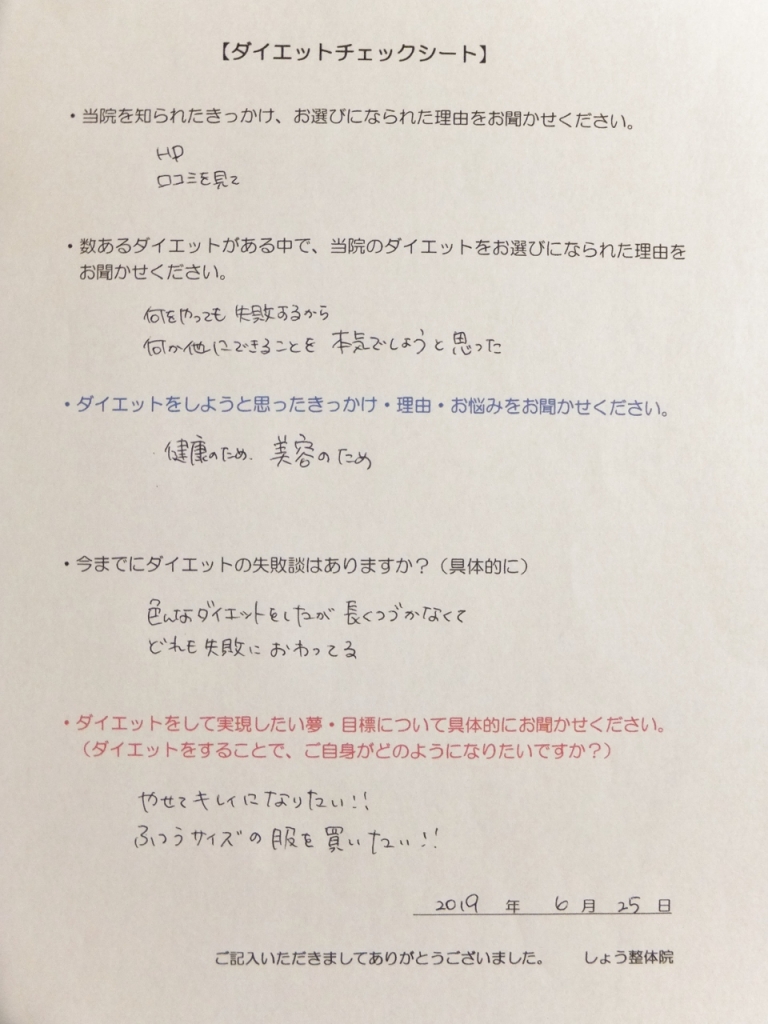 【ダイエットチェックシート】
・当院を知られたきっかけ、お選びになられた理由をお聞かせください。
HP
口コミを見て
・数あるダイエットがある中で、当院のダイエットをお選びになられた理由を
お聞かせください。
何をやっても失敗するから
何か他にできることを 本気でしようと思った
・ダイエットをしようと思ったきっかけ・理由・お悩みをお聞かせください。
健康のため、美容のため
・今までにダイエットの失敗談はありますか？（具体的に）
色んなダイエットをしたが 長くつづかなくて
どれも失敗に おわってる
・ダイエットをして実現したい夢・目標について具体的にお聞かせください。
（ダイエットをすることで、ご自身がどのようになりたいですか？）
やせてキレイになりたい!!
ふつうサイズの服を買いたい!!
2019 年 6 月 25 日
ご記入いただきましてありがとうございました。 しょう整体院